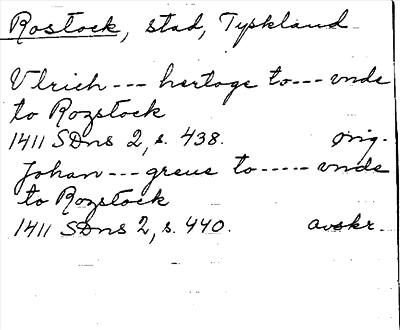 Rostock, stad, Tyskland
Vlrich --- hertoge to --- vnde
to Rozstock
1411 SDns 2, s. 438. orig.
Johan --- greue to ----- vnde
to Rozstock
1411 SDns 2, s. 440. avskr.